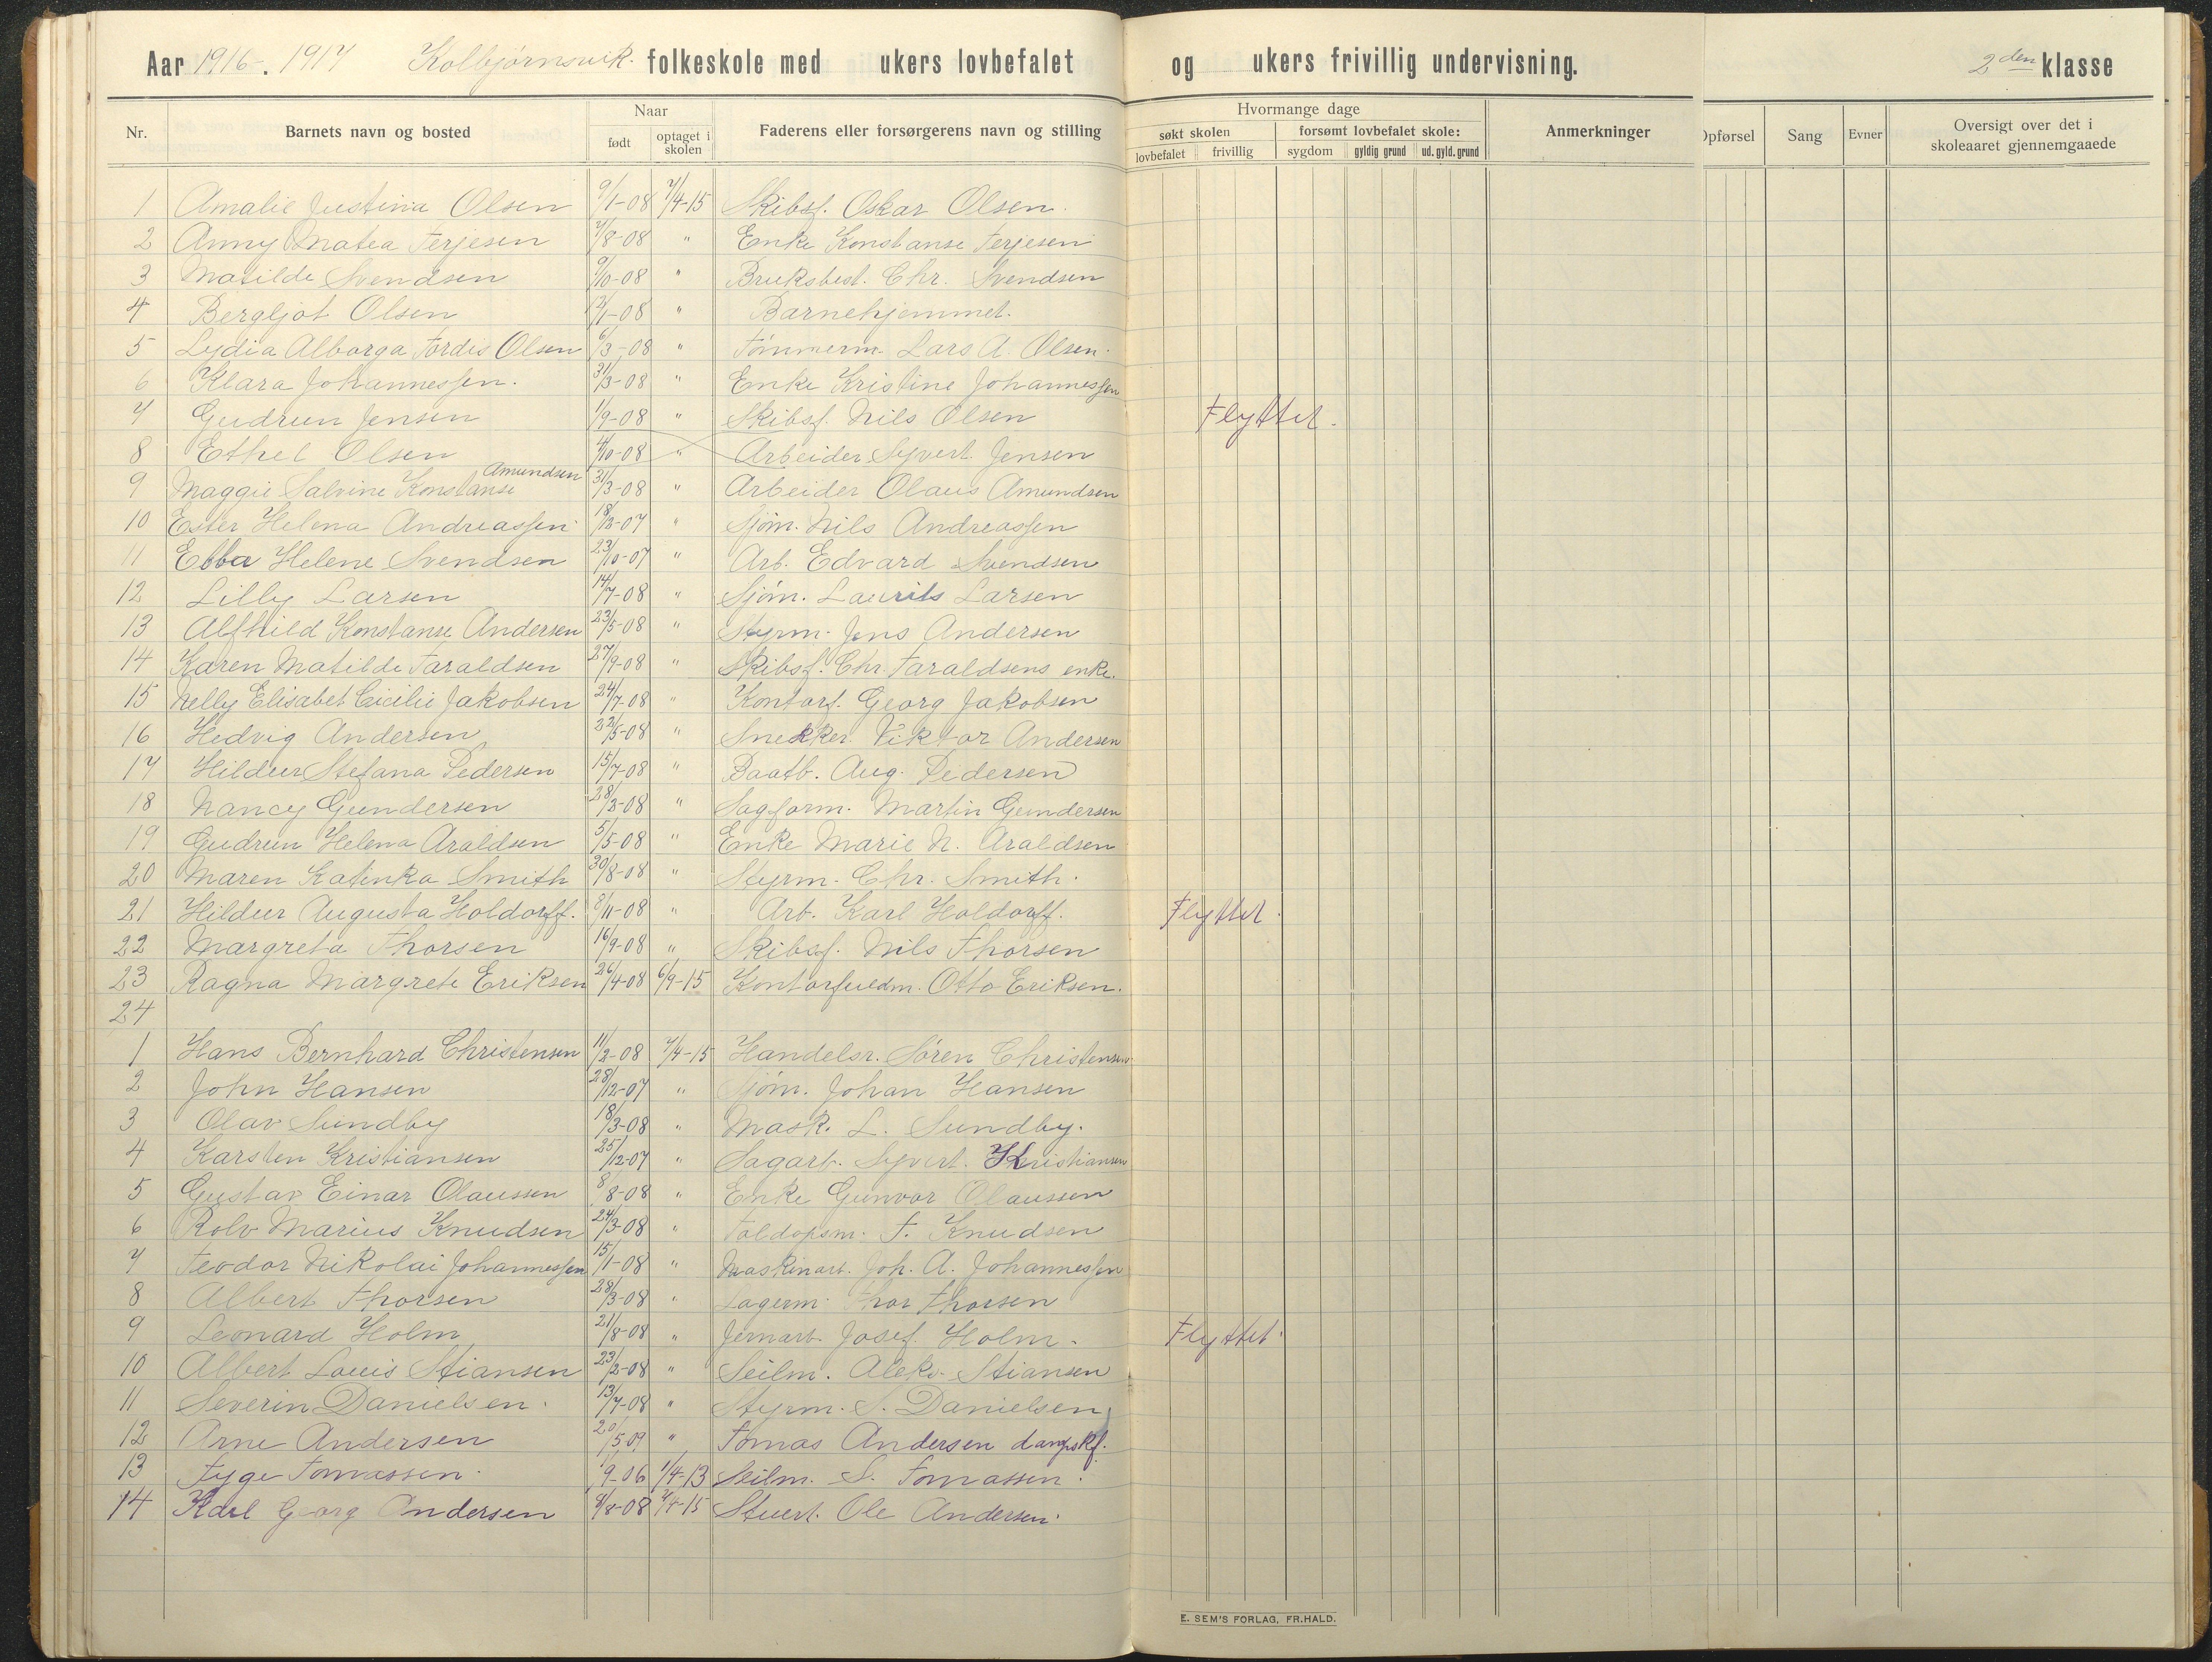 Aar 1916-1917 Kolbjørnsvik folkeskole med ukers lovbefalet og ukers frivillig undervisning. 2den klasse
Nr. Barnets navn og bosted Naar Faderens eller forsørgerens navn og stilling Hvormange dage Anmerkninger Opførsel Sang Evner Oversigt over det i skoleaaret gjennemgaaede
født optaget i skolen søkt skolen forsømt lovbefalet skole:
lovbefalet frivillig sygdom gyldig grund ud. gyld. grund
1 Amalie Justina Olsen 9/1-08 7/4-15 Skibsf. Oskar Olsen.
2 Anny Matea Terjesen 7/8-08 " Enke Konstanse Terjesen
3 Matilde Svendsen 9/10-08 " Bruksbest. Chr. Svendsen
4 Bergljot Olsen 12/1-08 " Barnehjemmet.
5 Lydia Alborga Tordis Olsen 6/3-08 " Tømmerm. Lars A. Olsen.
6 Klara Johannessen. 31/3-08 " Enke Kristine Johannessen
7 Gudrun Jensen 1/9-08 " Skibsf. Nils Olsen Flyttet.
8 Ethel Olsen 4/10-08 " Arbeider Syvert Jensen
9 Maggie Salvine Konstanse Amundsen 31/3-08 " Arbeider Olaus Amundsen
10 Ester Helena Andreassen 18/12-07 " Sjøm. Nils Andreassen
11 Ebba Helene Svendsen 23/10-07 " Arb. Edvard Svendsen
12 Lilly Larsen 14/7-08 " Sjøm. Laurits Larsen
13 Alfhild Konstanse Andersen 23/5-08 " Styrm. Jens Andersen
14 Karen Matilde Taraldsen 27/9-08 " Skibsf. Chr. Taraldsens enke.
15 Nelly Elisabet Cicilie Jakobsen 24/7-08 " Kontorf. Georg Jakobsen
16 Hedvig Andersen 22/5-08 " Snekker Viktor Andersen
17 Hildur Stefana Pedersen 15/7-08 " Baatb. Aug. Pedersen
18 Nancy Gundersen 28/3-08 " Sagform. Martin Gundersen
19 Gudrun Helena Araldsen 5/5-08 " Enke Marie N. Araldsen
20 Maren Katinka Smith 30/8-08 " Styrm. Chr. Smith.
21 Hildur Augusta Holdorff. 8/11-08 " Arb. Karl Holdorff. Flyttet.
22 Margreta Thorsen 16/9-08 " Skibsf. Nils Thorsen
23 Ragna Margrete Eriksen 26/4-08 6/9-15 Kontorfuldm. Otto Eriksen.
24
1 Hans Bernhard Christensen 11/2-08 7/4-15 Handelsr. Søren Christensen
2 John Hansen 28/12-07 " Sjøm. Johan Hansen
3 Olav Sundby 18/3-08 " Mask. L. Sundby.
4 Karsten Kristiansen 25/12-07 " Sagarb. Syvert Kristiansen
5 Gustav Einar Olaussen 8/8-08 " Enke Gunvor Olaussen
6 Rolv Marius Knudsen 24/3-08 " Toldopsm. T. Knudsen
7 Teodor Nikolai Johannessen 15/1-08 " Maskinarb. Joh. A. Johannessen
8 Albert Thorsen 28/3-08 " Lagerm. Thor Thorsen
9 Leonard Holm 21/8-08 " Jernarb. Josef Holm. Flyttet.
10 Albert Louis Stiansen 23/2-08 " Seilm. Aleks. Stiansen
11 Severin Danielsen. 13/7-08 " Styrm. S. Danielsen
12 Arne Andersen 20/5 09 " Tomas Andersen dampskf.
13 Tyge Tomassen. 1/9-06 1/4-13 Seilm. S. Tomassen.
14 Karl Georg Andersen 8/8-08 7/4-15 Stuert. Ole Andersen.
E. SEM'S FORLAG, FR.HALD.